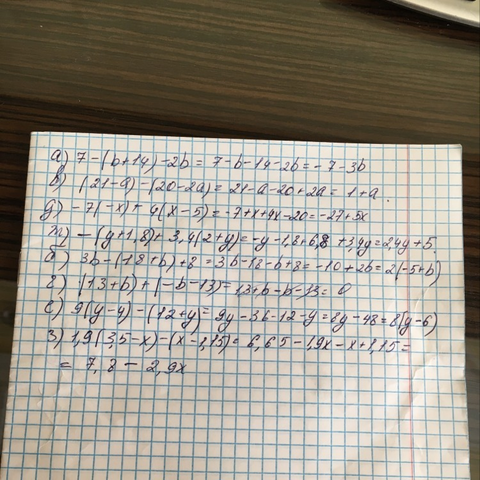 а) 7-(b+14)-2b= 7-b-14-2b=-7-3b
в) (21-a)-(20-2a)= 21-a-20+2a= 1+a.
д) -7(-x)+ 4(x-5)=-7+x+4x-20=-27+5x
ж) -(y+1,8)+3,4(2+y)=-y-1,8+6,8+3,4y=2,4y+5.
б) 3b-(18+b)+8=3b-18-b+8=-10+2b=2(-5+b)
г) (13+b)+(-b-13)=13+b-b-13=0
е) 9(y-4)-(12+y)=9y-36-12-y=8y-48=8(y-6)
з) 1,9(3,5-x)-(x-1,15)=6,65-1,9x-x+1,15=
= 7,8-2,9x